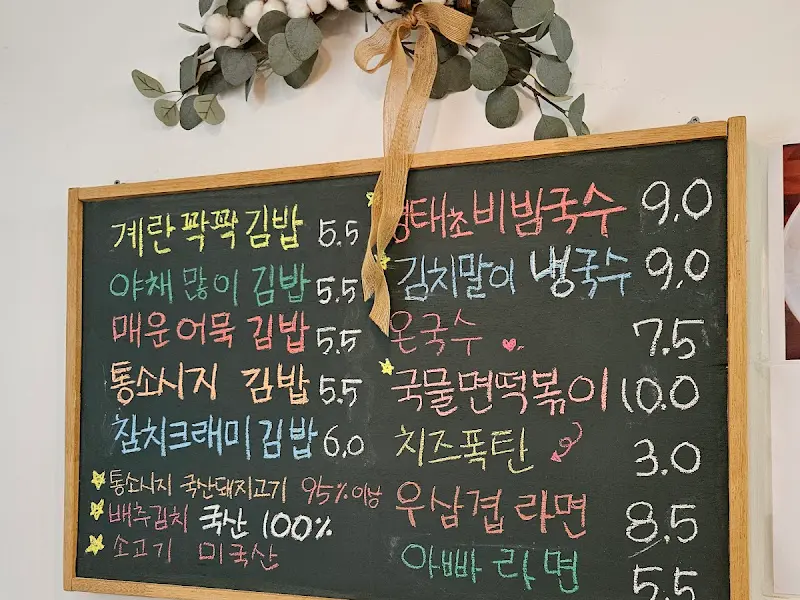 계란 팍팍 김밥 5.5
야채 많이 김밥 5.5
매운어묵 김밥 5.5
통소시지 김밥 5.5
참치크래미김밥 6.0
통소시지 국산돼지고기 95% 이상
배추김치 국산 100%
소고기 미국산
명태초비빔국수 9.0
김치말이 냉국수 9.0
온국수 7.5
국물면떡볶이 10.0
치즈폭탄 3.0
우삼겹 라면 8.5
아빠 라면 5.5